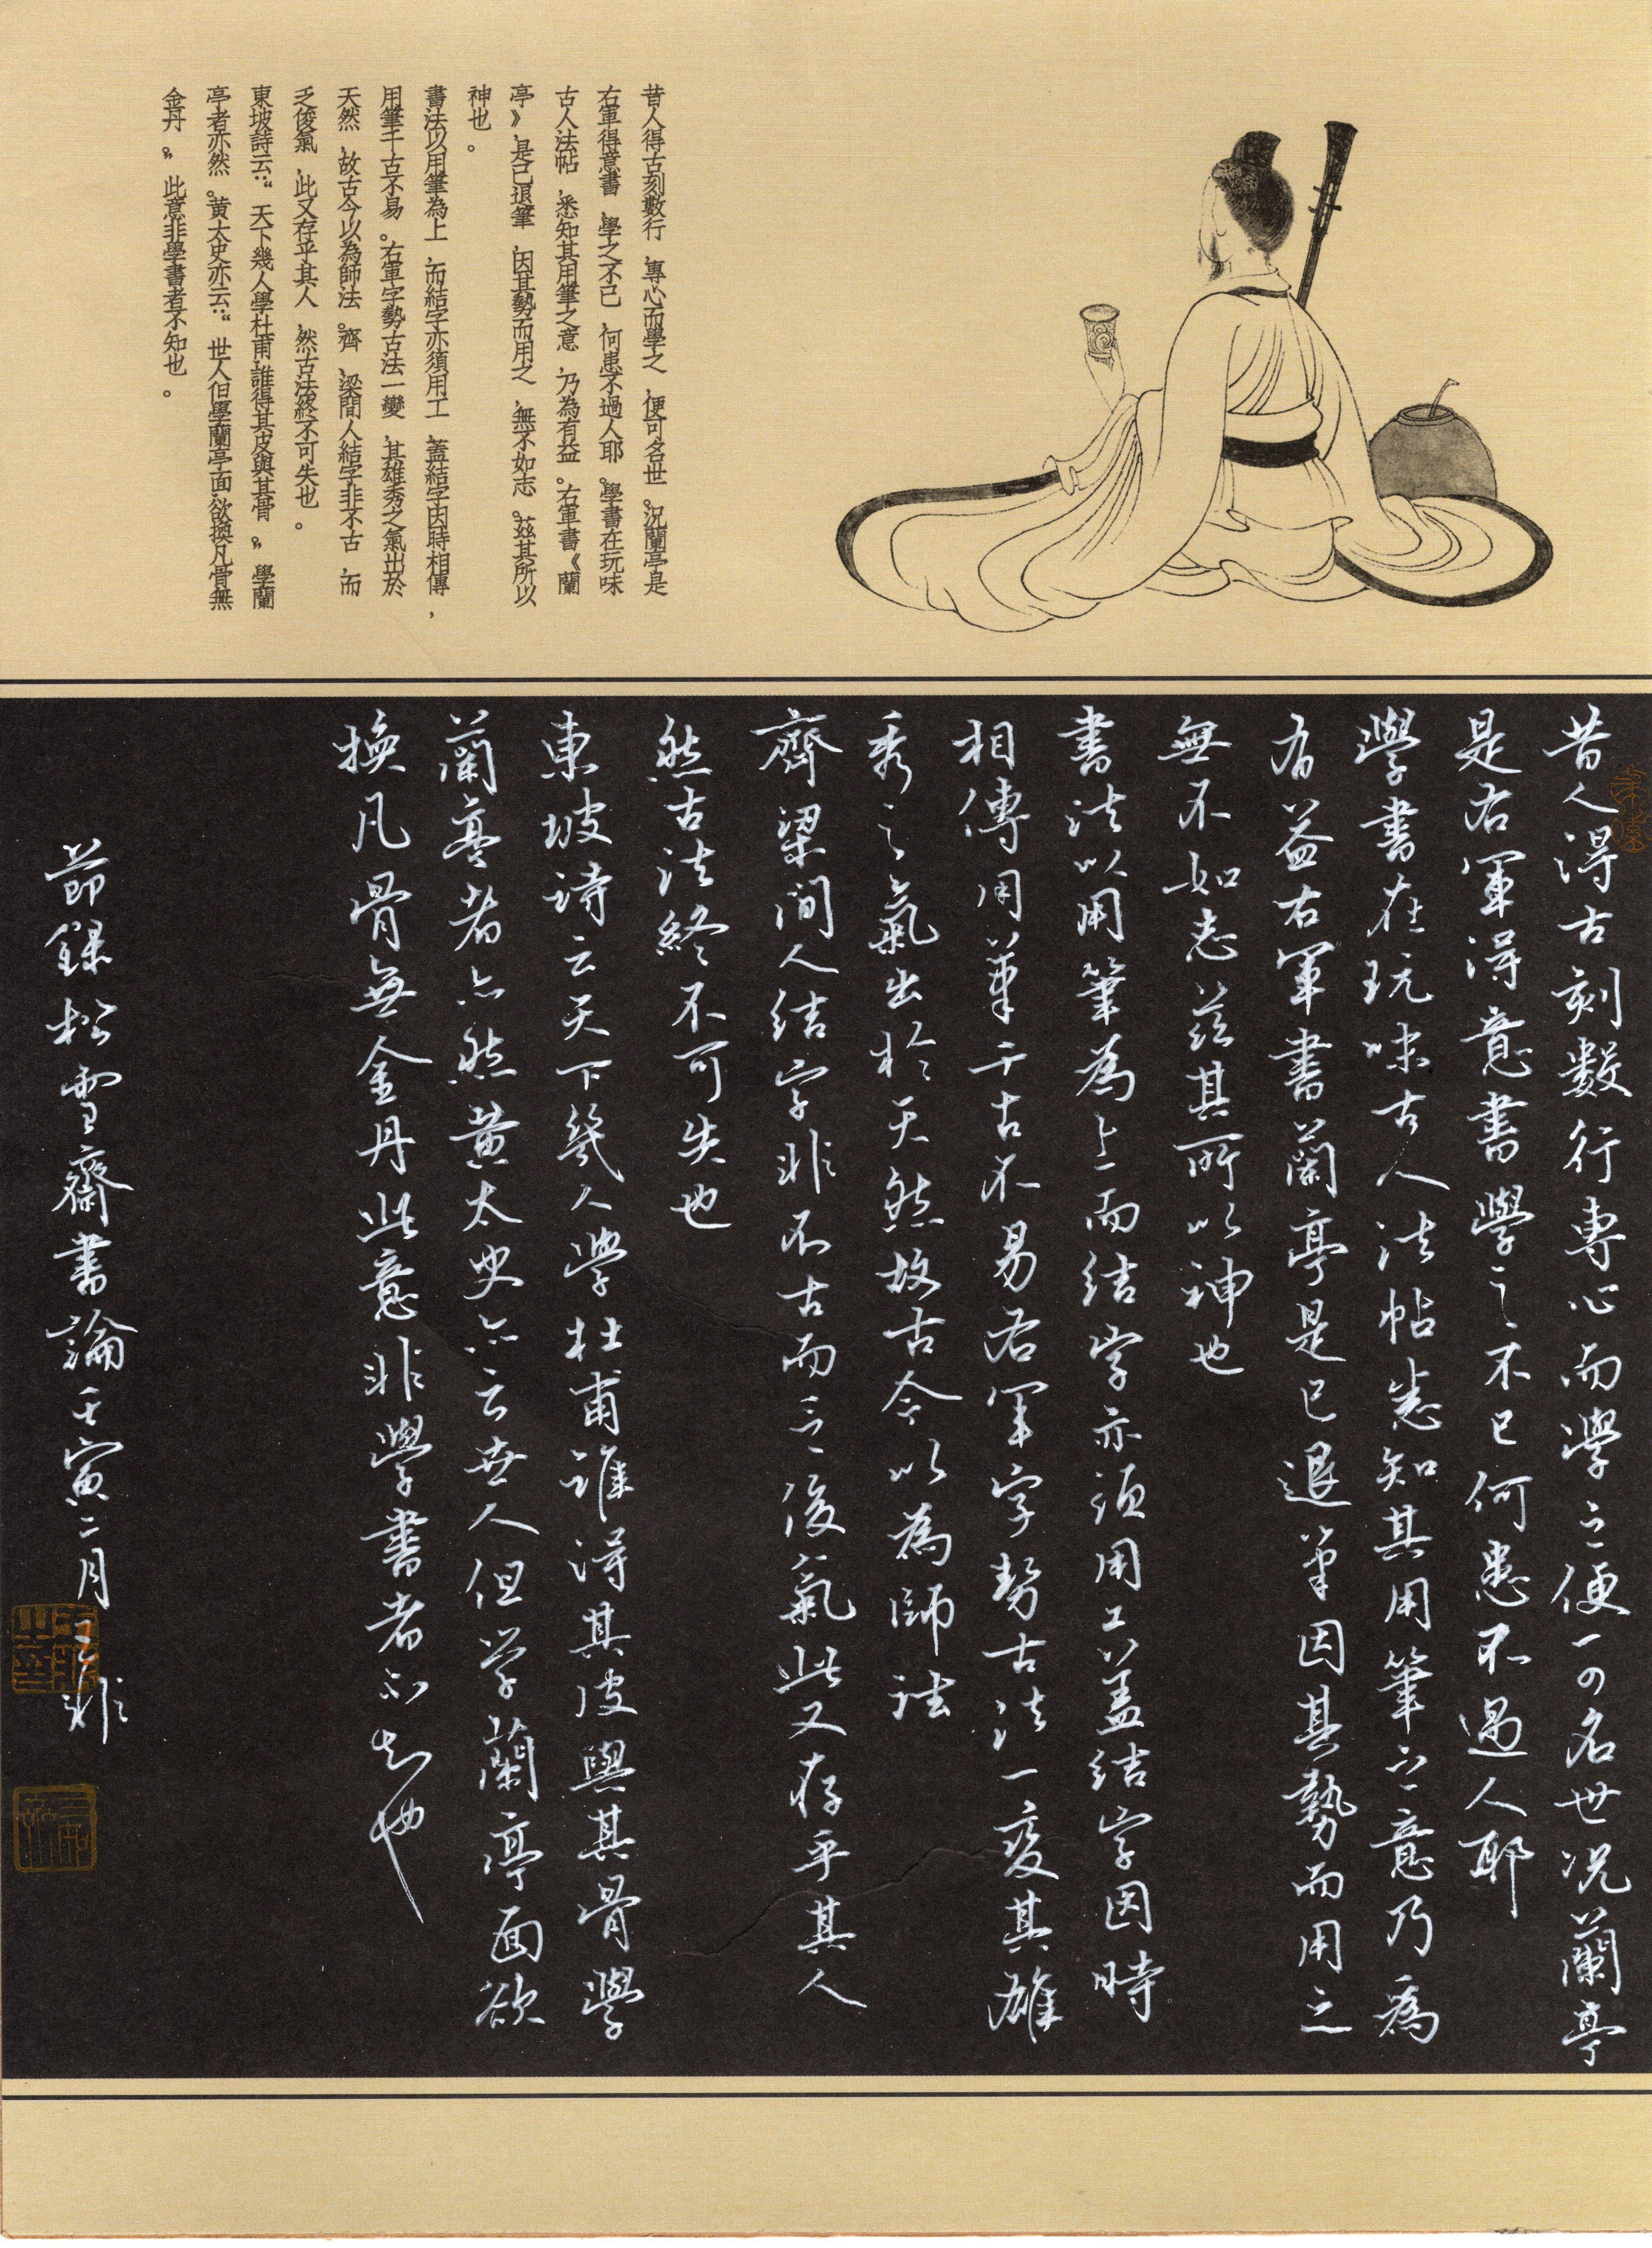 昔人得古刻數行，專心而學之，便可名世。況蘭亭是
右軍得意書，學之不已，何患不過人耶。學書在玩味
古人法帖，悉知其用筆之意，乃為有益。右軍書《蘭
亭》是已退筆，因其勢而用之，無不如志。茲其所以
神也。
書法以用筆為上，而結字亦須用工，蓋結字因時相傳，
用筆千古不易。右軍字勢古法一變，其雄秀之氣出於
天然，故古今以為師法。齊、梁間人結字非不古，而
乏俊氣，此又存乎其人，然古法終不可失也。
東坡詩云：“天下幾人學杜甫，誰得其皮與其骨。”學蘭
亭者亦然。黃太史亦云：“世人但學蘭亭面，欲換凡骨無
金丹。”此意非學書者不知也。
昔人得古刻數行專心而學之便可名世况蘭亭
是右軍得意書學之不已何患不過人耶
學書在玩味古人法帖悉知其用筆之意乃為
有益右軍書蘭亭是已退筆因其勢而用之
無不如志茲其所以神也
書法以用筆為上而結字亦須用工蓋結字因時
相傳用筆千古不易右軍字勢古法一變其雄
秀之氣出於天然故古今以為師法
齊梁間人結字非不古而乏俊氣此又存乎其人
然古法終不可失也
東坡詩云天下幾人學杜甫誰得其皮與其骨學
蘭亭者亦然黃太史亦云世人但学蘭亭面欲
換凡骨無金丹此意非學書者不知也
節錄松雪齋書論壬寅二月王非